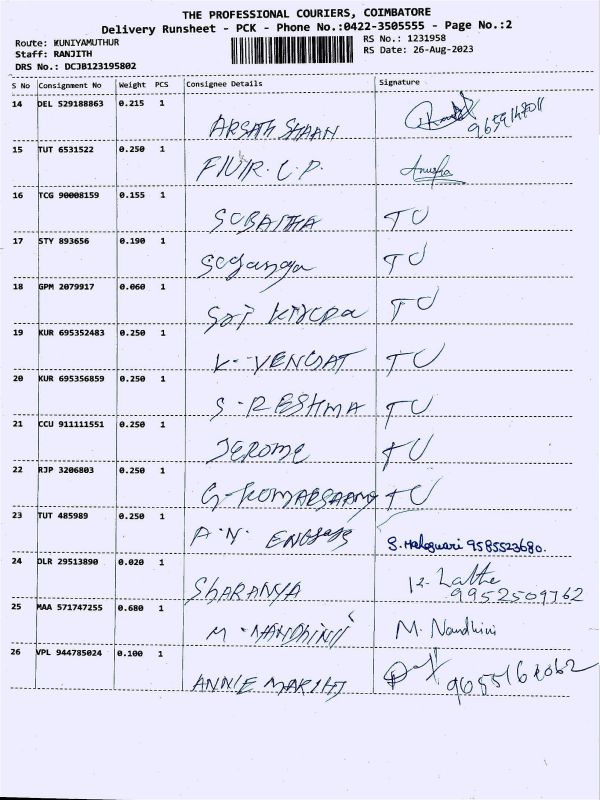 THE PROFESSIONAL COURIERS, COIMBATORE
Delivery Runsheet - PCK - Phone No.:0422-3505555 - Page No.:2
Route: KUNIYAMUTHUR
Staff: RANJITH
DRS No.: DCJB123195802
RS No.: 1231958
RS Date: 26-Aug-2023
S No Consignment No Weight PCS Consignee Details Signature
14 DEL 529188863 0.215 1
ARSATH SHAAN
15 TUT 6531522 0.250 1
16 TCG 90008159 0.155 1
SUBAITHA TU
17 STY 893656 0.190 1
TU
18 GPM 2079917 0.060 1
TU
19 KUR 695352483 0.250 1
K. VENGAT TU
20 KUR 695356859 0.250 1
S. RESHMA TU
21 CCU 911111551 0.250 1
JEROME TU
22 RJP 3206803 0.250 1
TU
23 TUT 485989 0.250 1
A.N. 9585523680.
24 DLR 29513890 0.020 1
SHARANYA 9952509762
25 MAA 571747255 0.680 1
M. NANDHINI M. Nandhini
26 VPL 944785024 0.100 1
ANNIE